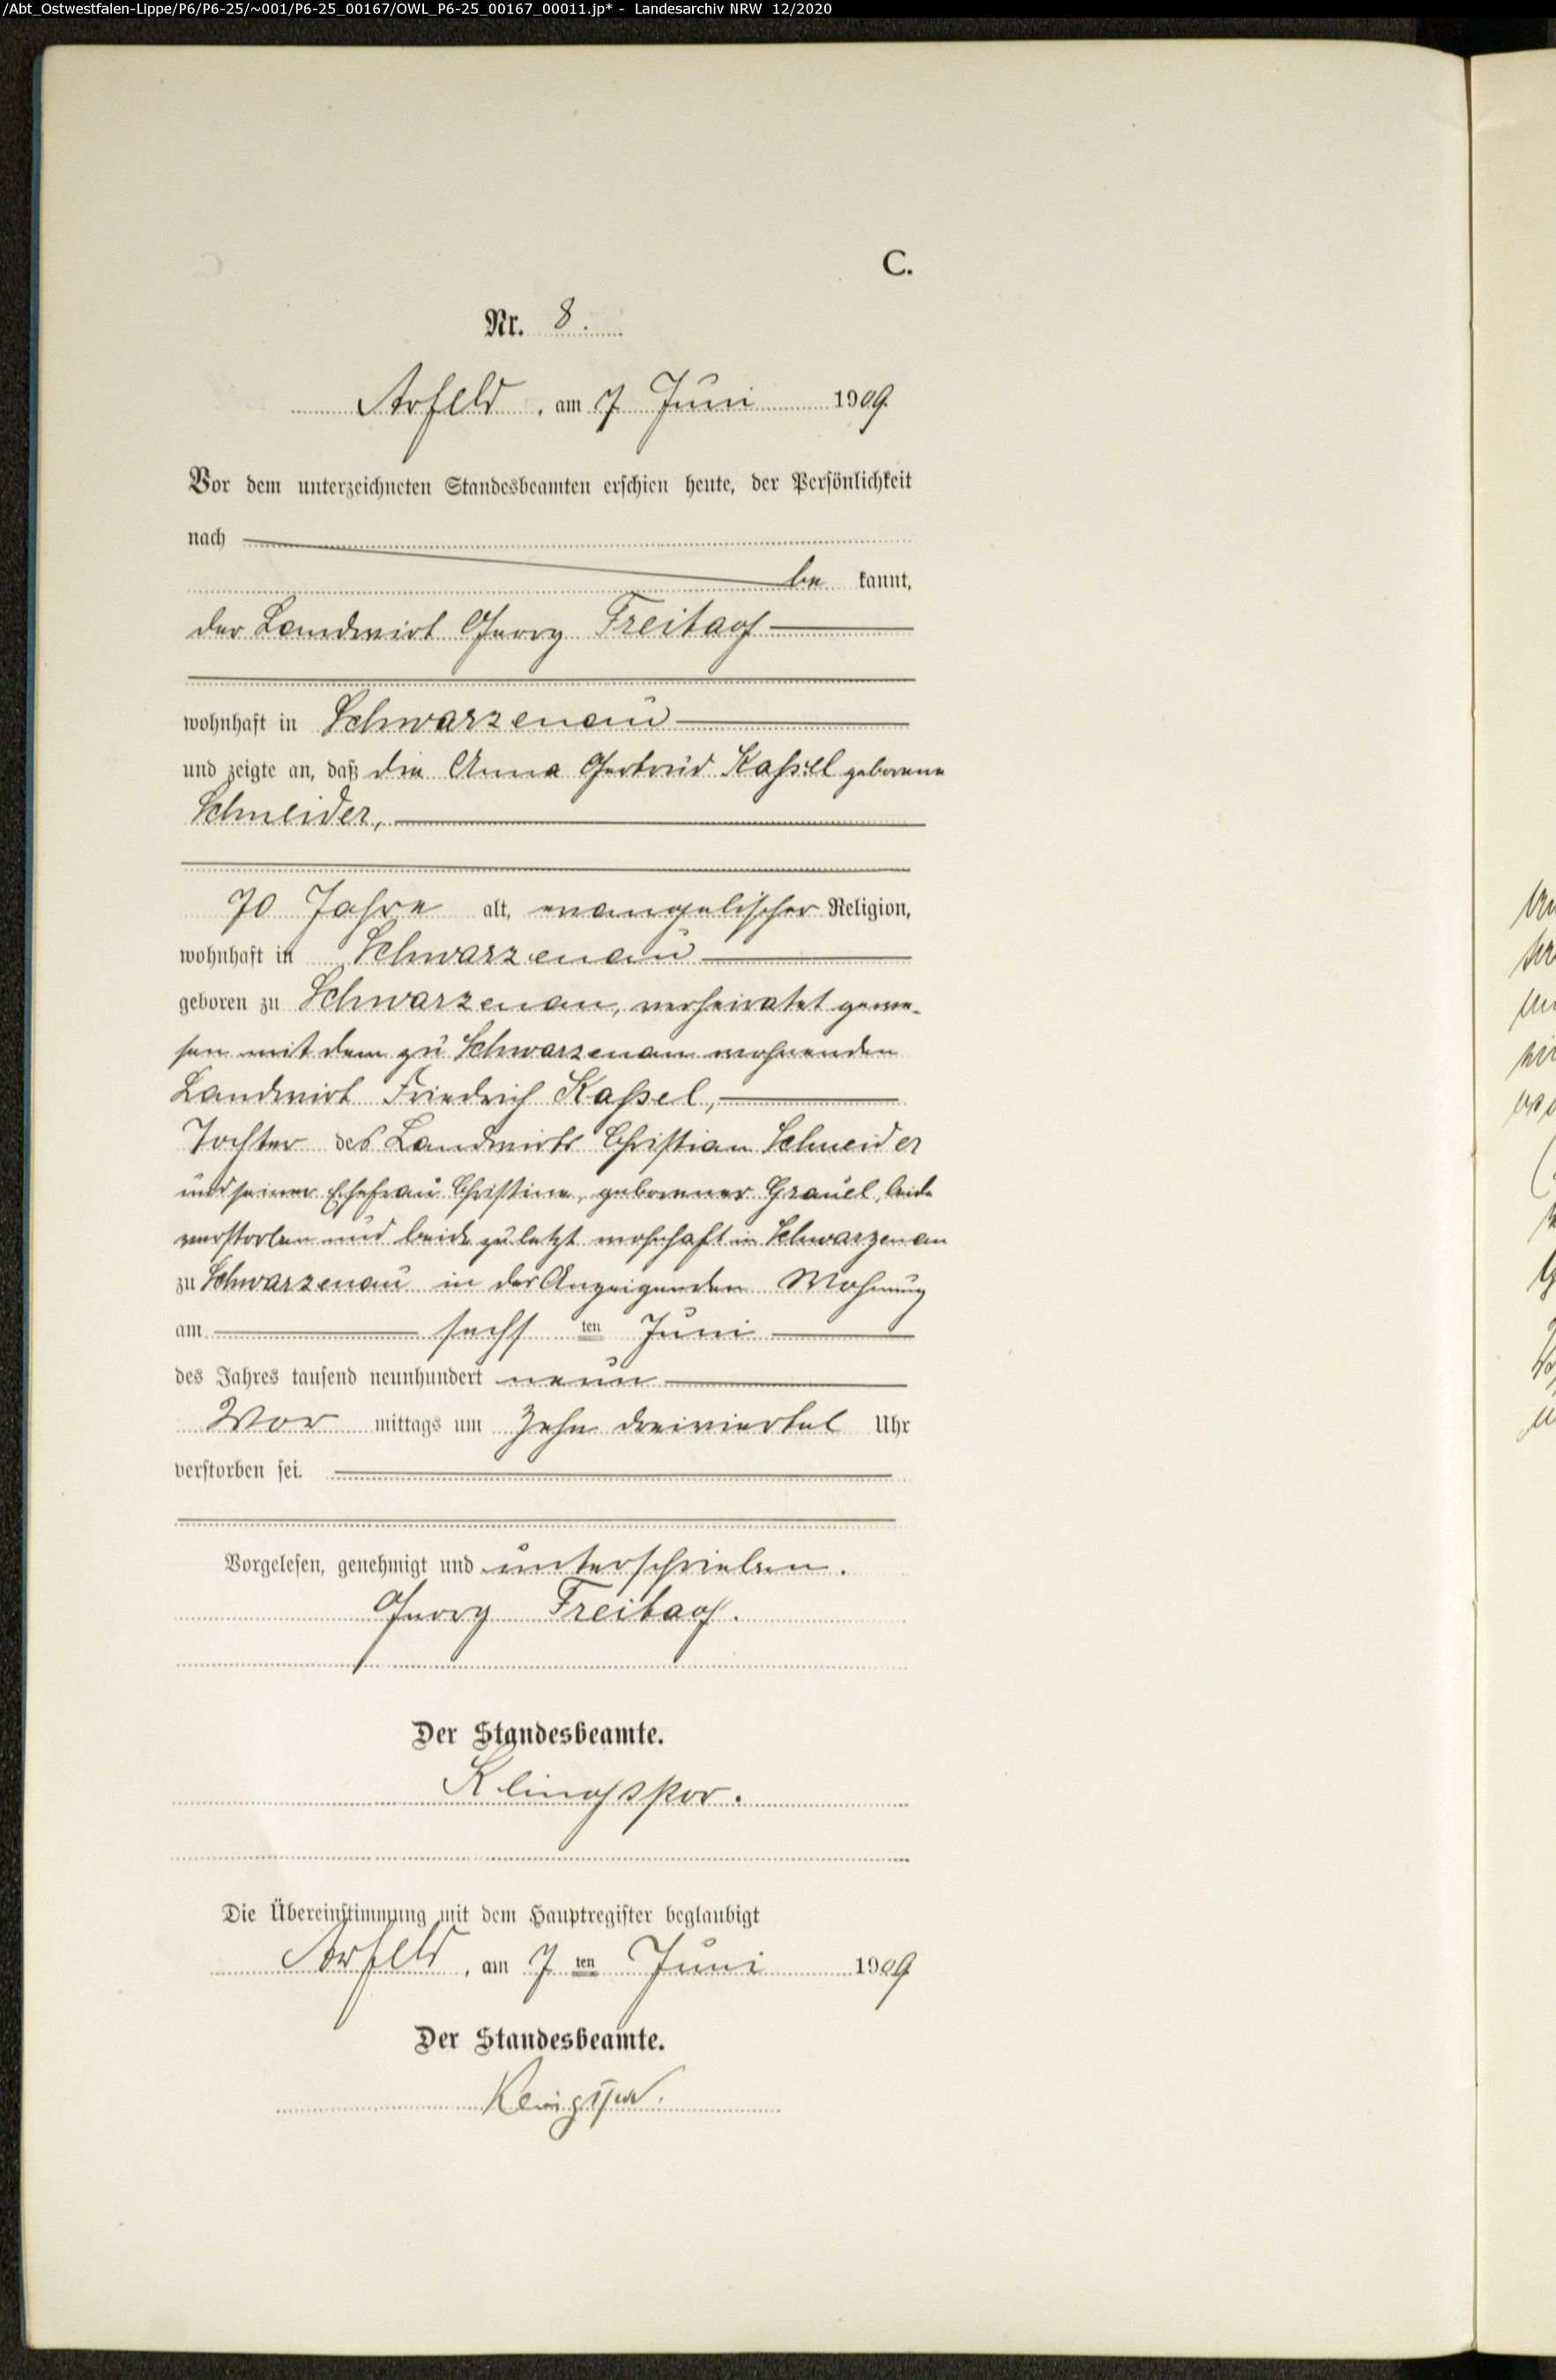 /Abt_Ostwestfalen-Lippe/P6/P6-25/~001/P6-25_00167/OWL_P6-25_00167_00011.jp* - Landesarchiv NRW 12/2020
C.
Nr. 8.
Arfeld, am 7. Juni 1909.
Vor dem unterzeichneten Standesbeamten erschien heute, der Persönlichkeit
nach
be kannt,
der Landwirt Georg Freitag
wohnhaft in Schwarzenau
und zeigte an, daß die Anna Gertrud Kaßel geborene
Schneider,
70 Jahre alt, evangelischer Religion,
wohnhaft in Schwarzenau
geboren zu Schwarzenau, verheiratet gewe-
sen mit dem zu Schwarzenau wohnenden
Landwirt Friedrich Kaßel,
Tochter des Landwirts Christian Schneider
und seiner Ehefrau Christine, geborener Grauel, beide
verstorben und beide zuletzt wohnhaft in Schwarzenau
zu Schwarzenau in des Anzeigenden Wohnung
am sechsten Juni
des Jahres tausend neunhundert neun
Vor mittags um zehn dreiviertel Uhr
verstorben sei.
Vorgelesen, genehmigt und unterschrieben.
Georg Freitag.
Der Standesbeamte.
Klingspor.
Die Übereinstimmung mit dem Hauptregister beglaubigt
Arfeld, am 7ten Juni 1909
Der Standesbeamte.
Klingspor.